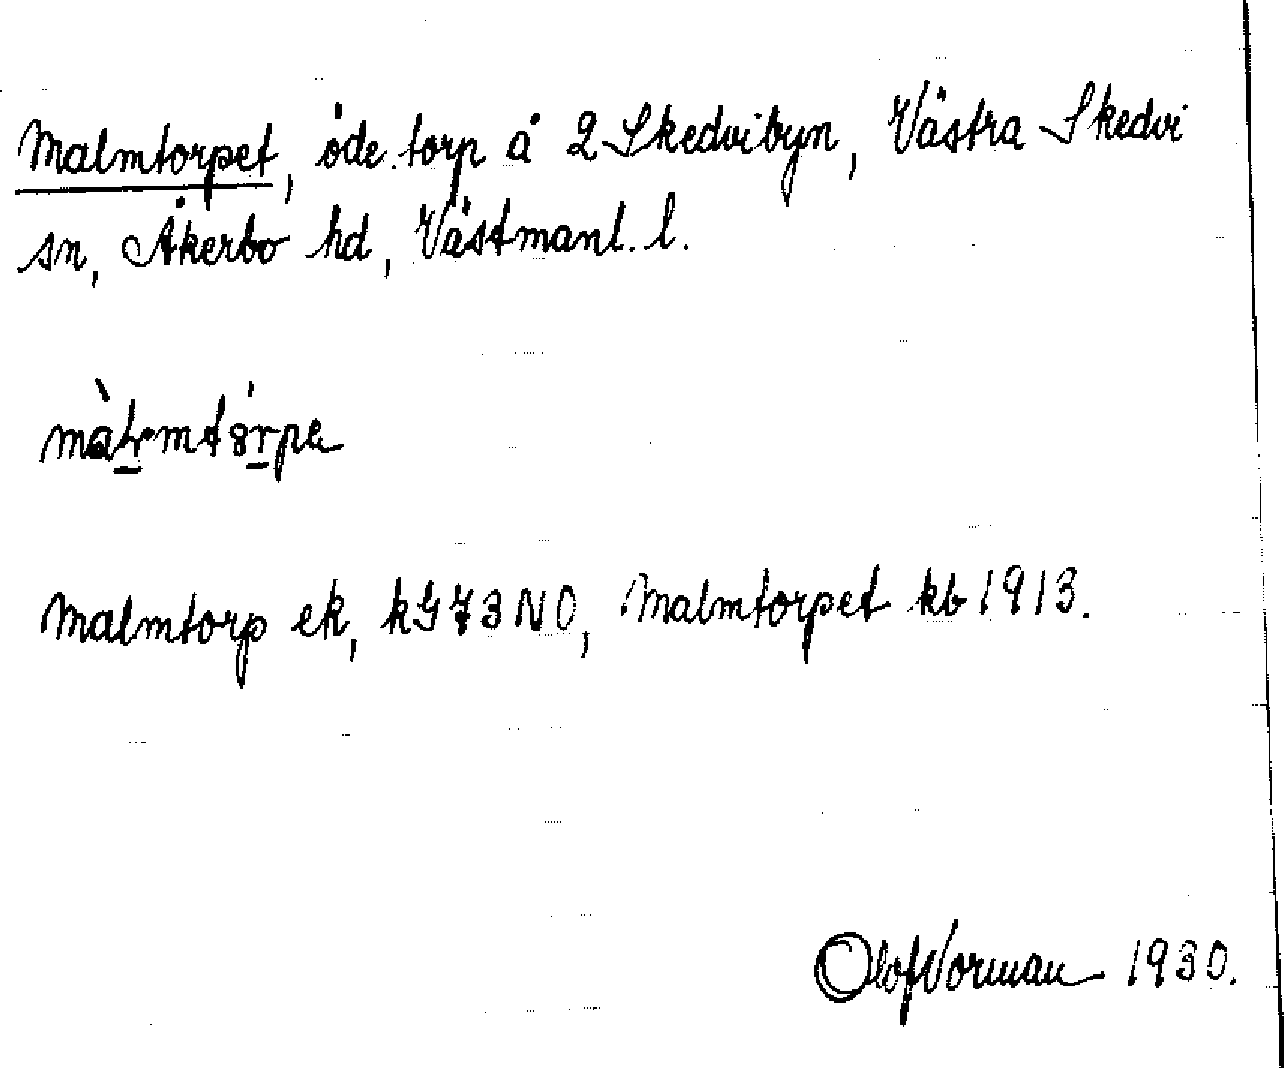 Malmtorpet, öde torp å 2 Skedvibyn, Västra Skedvi
sn, Åkerbo hd, Västmanl. l.
Malmtorp ek, kG73NO, Malmtorpet kb 1913.
Olof Vorman 1930.